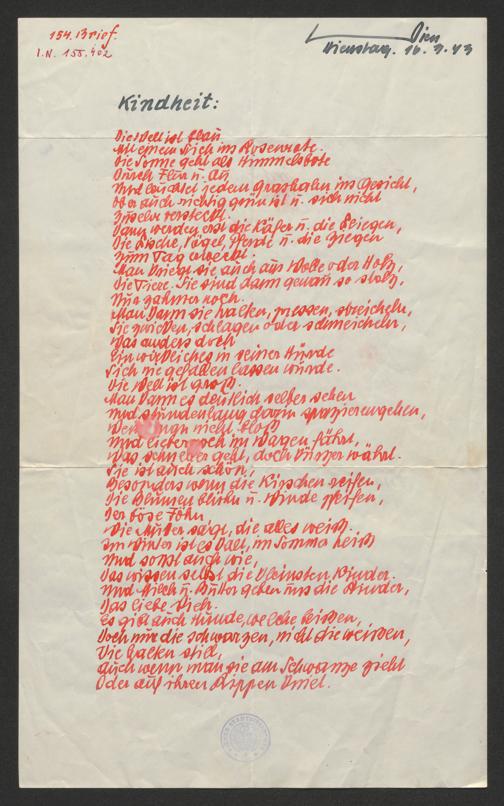 154. Brief.
I.N. 155.402
Wien
Dienstag. 16.3.43
Kindheit:
Die Welt ist blau
Mit einem Stich ins Rosenrote.
Die Sonne geht als Himmelsbote
Durch Flur u. Au
Und leuchtet jedem Grashalm ins Gesicht,
Ob er auch richtig grün ist u. sich nicht
versteckt.
Dann werden erst die Käfer u. die Fliegen,
Die Fische, Vögel, Pferde u. die Ziegen
Zum Tag erweckt.
Man kriegt sie auch aus Wolle oder Holz,
Die Tiere. Sie sind dann genau so stolz,
Nur zahmer noch.
Man kann sie halten, pressen, streicheln,
Sie zwicken, schlagen oder schmeicheln,
Was anders doch
Ein wirkliches in seiner Würde
Sich nie gefallen lassen würde.
Die Welt ist groß.
Man kann es deutlich selber sehen
Und stundenlang darin spazierengehen,
Wenn nicht bloß
Und lieber noch im Wagen fährt,
Was schneller geht, doch kürzer währt.
Sie ist auch schön,
Besonders wenn die Kirschen reifen,
Die Blumen blühn u. Winde pfeifen,
Der böse Föhn
Wie Mutter sagt, die alles weiß.
Im Winter ist es kalt, im Sommer heiß
Und sonst auch wie,
Das wissen selbst die kleinsten Kinder.
Und Milch u. Butter geben uns die Rinder,
Das liebe Vieh.
Es gibt auch Hunde, welche beißen,
Doch nur die schwarzen, nicht die weißen,
Die halten still,
Auch wenn man sie am Schwanze zieht
Oder auf ihren Rippen kniet.